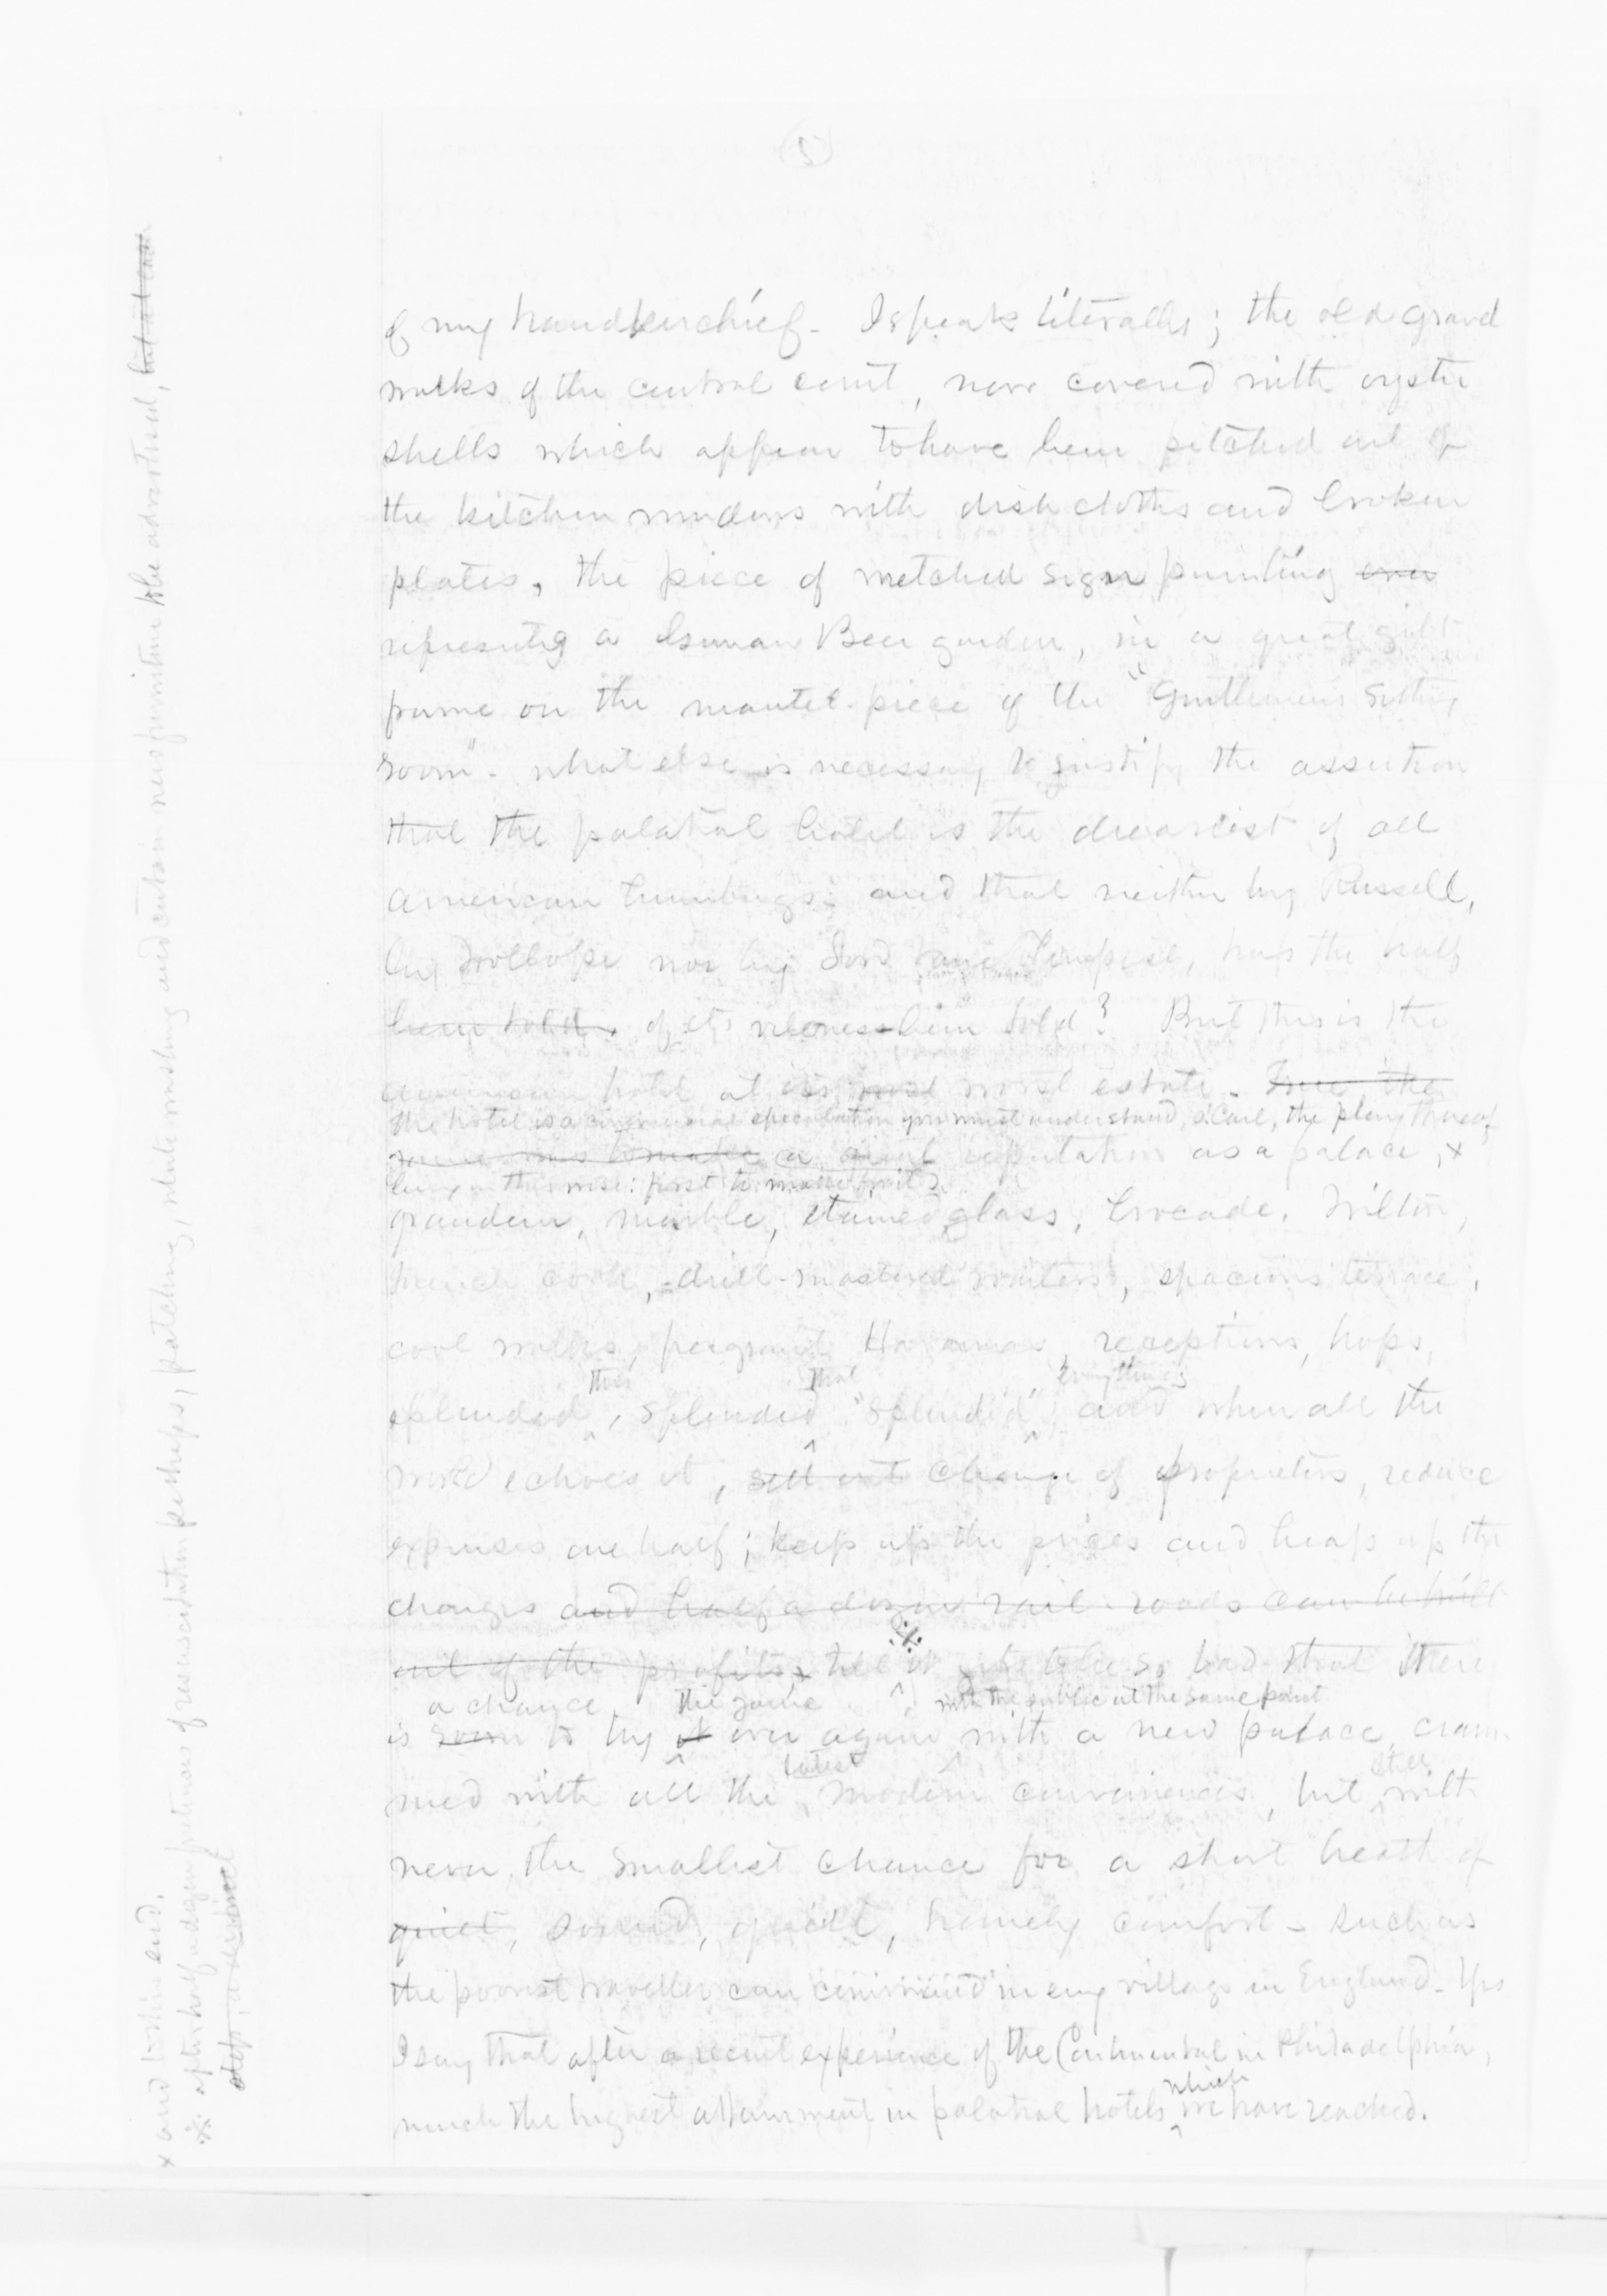 (5)
of my handkerchief. I speak literally; the old gravel
walks of the central court, now covered with oyster
shells which appear to have been pitched out of
the kitchen windows with dish cloths and broken
plates, the piece of wretched sign painting
representg a German Beer garden, in a great gilt
frame on the mantel-piece of the "Gentlemen's Sitting
room". what else is necessary to justify the assertion
that the palatial hotel is the dreariest of all
American humbugs: and that neither by Russell,
by Trollope nor by has the half
been told, of its vileness been told? But this is the
American hotel at its worst worst estate. True the
The hotel is a commercial speculation you must understand, the plan thereof
a great reputation as a palace, x
being in this wise: first to make
grandeur, marble, stained glass, brocade, Wilton,
french cook, drill-mastered waiters, spacious terrace,
cool walks, fragrant Havannas, receptions, hops,
this that everything
splendid, splendid "splendid", and when all the
world echoes it, sell out change of proprietors, reduce
expenses one half; keep up the prices and heap up the
charges and half a dozen rail-roads can be built
out of the profits, till it gets to be so bad that there
a chance the game with the public at the same point
is room to try it over again with a new palace, cram-
latest still
med with all the modern conveniences, but with
never the smallest chance for a short breath of
quiet, sound, quiet, homely comfort - such as
the poorest traveller can command in any village in England. Yes
I say that after a recent experience of the Continental in Philadelphia,
which
much the highest attainment in palatial hotels we have reached.
x and to this end.
※ after half a dozen pretenses of resuscitation perhaps, patching, whitewashing and certain new furniture to be advertised, but at each
step,